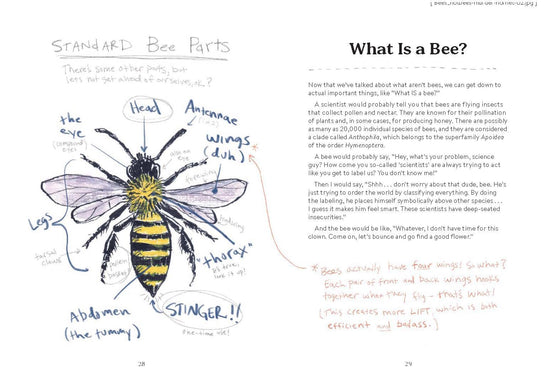 STANDARD Bee Parts
There's some other parts, but
lets not get ahead of ourselves, ok?
Head
Antennae
the
eye
(compound
eyes)
wings
(duh)
*
forewing
hindwing
Legs
tarsal
claws
pollen
basket
"thorax"
Abdomen
(the tummy)
STINGER!!
one-time use!
28
What Is a Bee?
Now that we've talked about what aren't bees, we can get down to
actual important things, like "What IS a bee?"
A scientist would probably tell you that bees are flying insects
that collect pollen and nectar. They are known for their pollination
of plants and, in some cases, for producing honey. There are possibly
as many as 20,000 individual species of bees, and they are considered
a clade called Anthophila, which belongs to the superfamily Apoidea
of the order Hymenoptera.
A bee would probably say, "Hey, what's your problem, science
guy? How come you so-called 'scientists' are always trying to act
like you get to label us? You don't know me!"
Then I would say, "Shhh . . . don't worry about that dude, bee. He's
just trying to order the world by classifying everything. By doing
the labeling, he places himself symbolically above other species . . .
I guess it makes him feel smart. These scientists have deep-seated
insecurities."
And the bee would be like, "Whatever, I don't have time for this
clown. Come on, let's bounce and go find a good flower."
* Bees actually have four wings! So what?
Each pair of front and back wings hooks
together when they fly - that's what!
(This creates more LIFT, which is both
efficient and badass.)
29